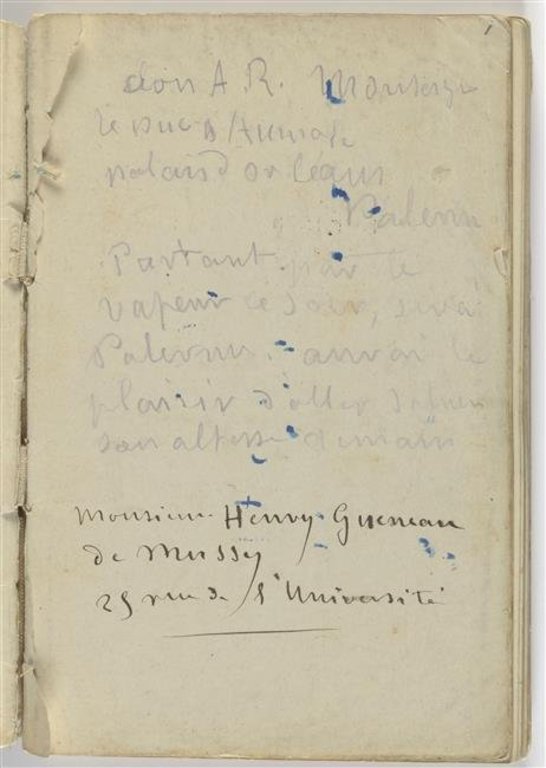 1
son A. R. Monseig
le Duc d'Aumale
palais d'orléans
Palerme
Partant par le
vapeur ce soir, serai
Palerme. aurai le
plaisir d'aller saluer
son altesse demain
Monsieur Henry Gueneau
de Mussy
25 rue de l'Université